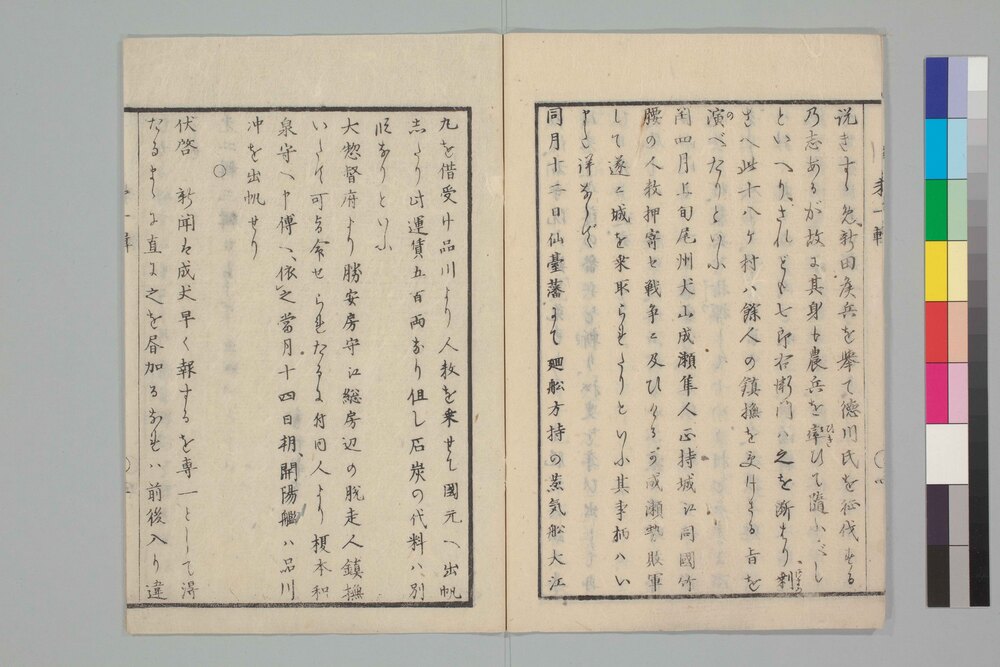 説きすゝめ新田侯兵を挙て徳川氏を征伐せる
乃志あるが故に其身も農兵を率ひて随ふべし
といへりされども七郎右衛門ハ之を断はり剰
さへ此十八ケ村ハ餘人の鎮撫を受けさる旨を
演べたりといふ
閏四月上旬尾州犬山成瀬隼人正持城江同國竹
腰の人数押寄せ戦争に及びけるが成瀬勢敗軍
して遂に城を乗取られたりといふ其事柄ハい
まだ詳ならず
同月十二日仙臺藩にて廻舩方持の蒸気舩大江
丸を借受け品川より人数を乗せて國元へ出帆
したり此運賃五百両なり但し石炭の代料ハ別
段なりといふ
大惣督府より勝安房守江総房辺の脱走人鎮撫
いたすべき可き旨命せられたるに付同人より榎本和
泉守へ申傳へ依之當月十四日朝開陽艦ハ品川
沖を出帆せり
○
伏啓 新聞ハ成丈早く報するを専一として得
たるまゝに直に之を昼加るなれハ前後入り違